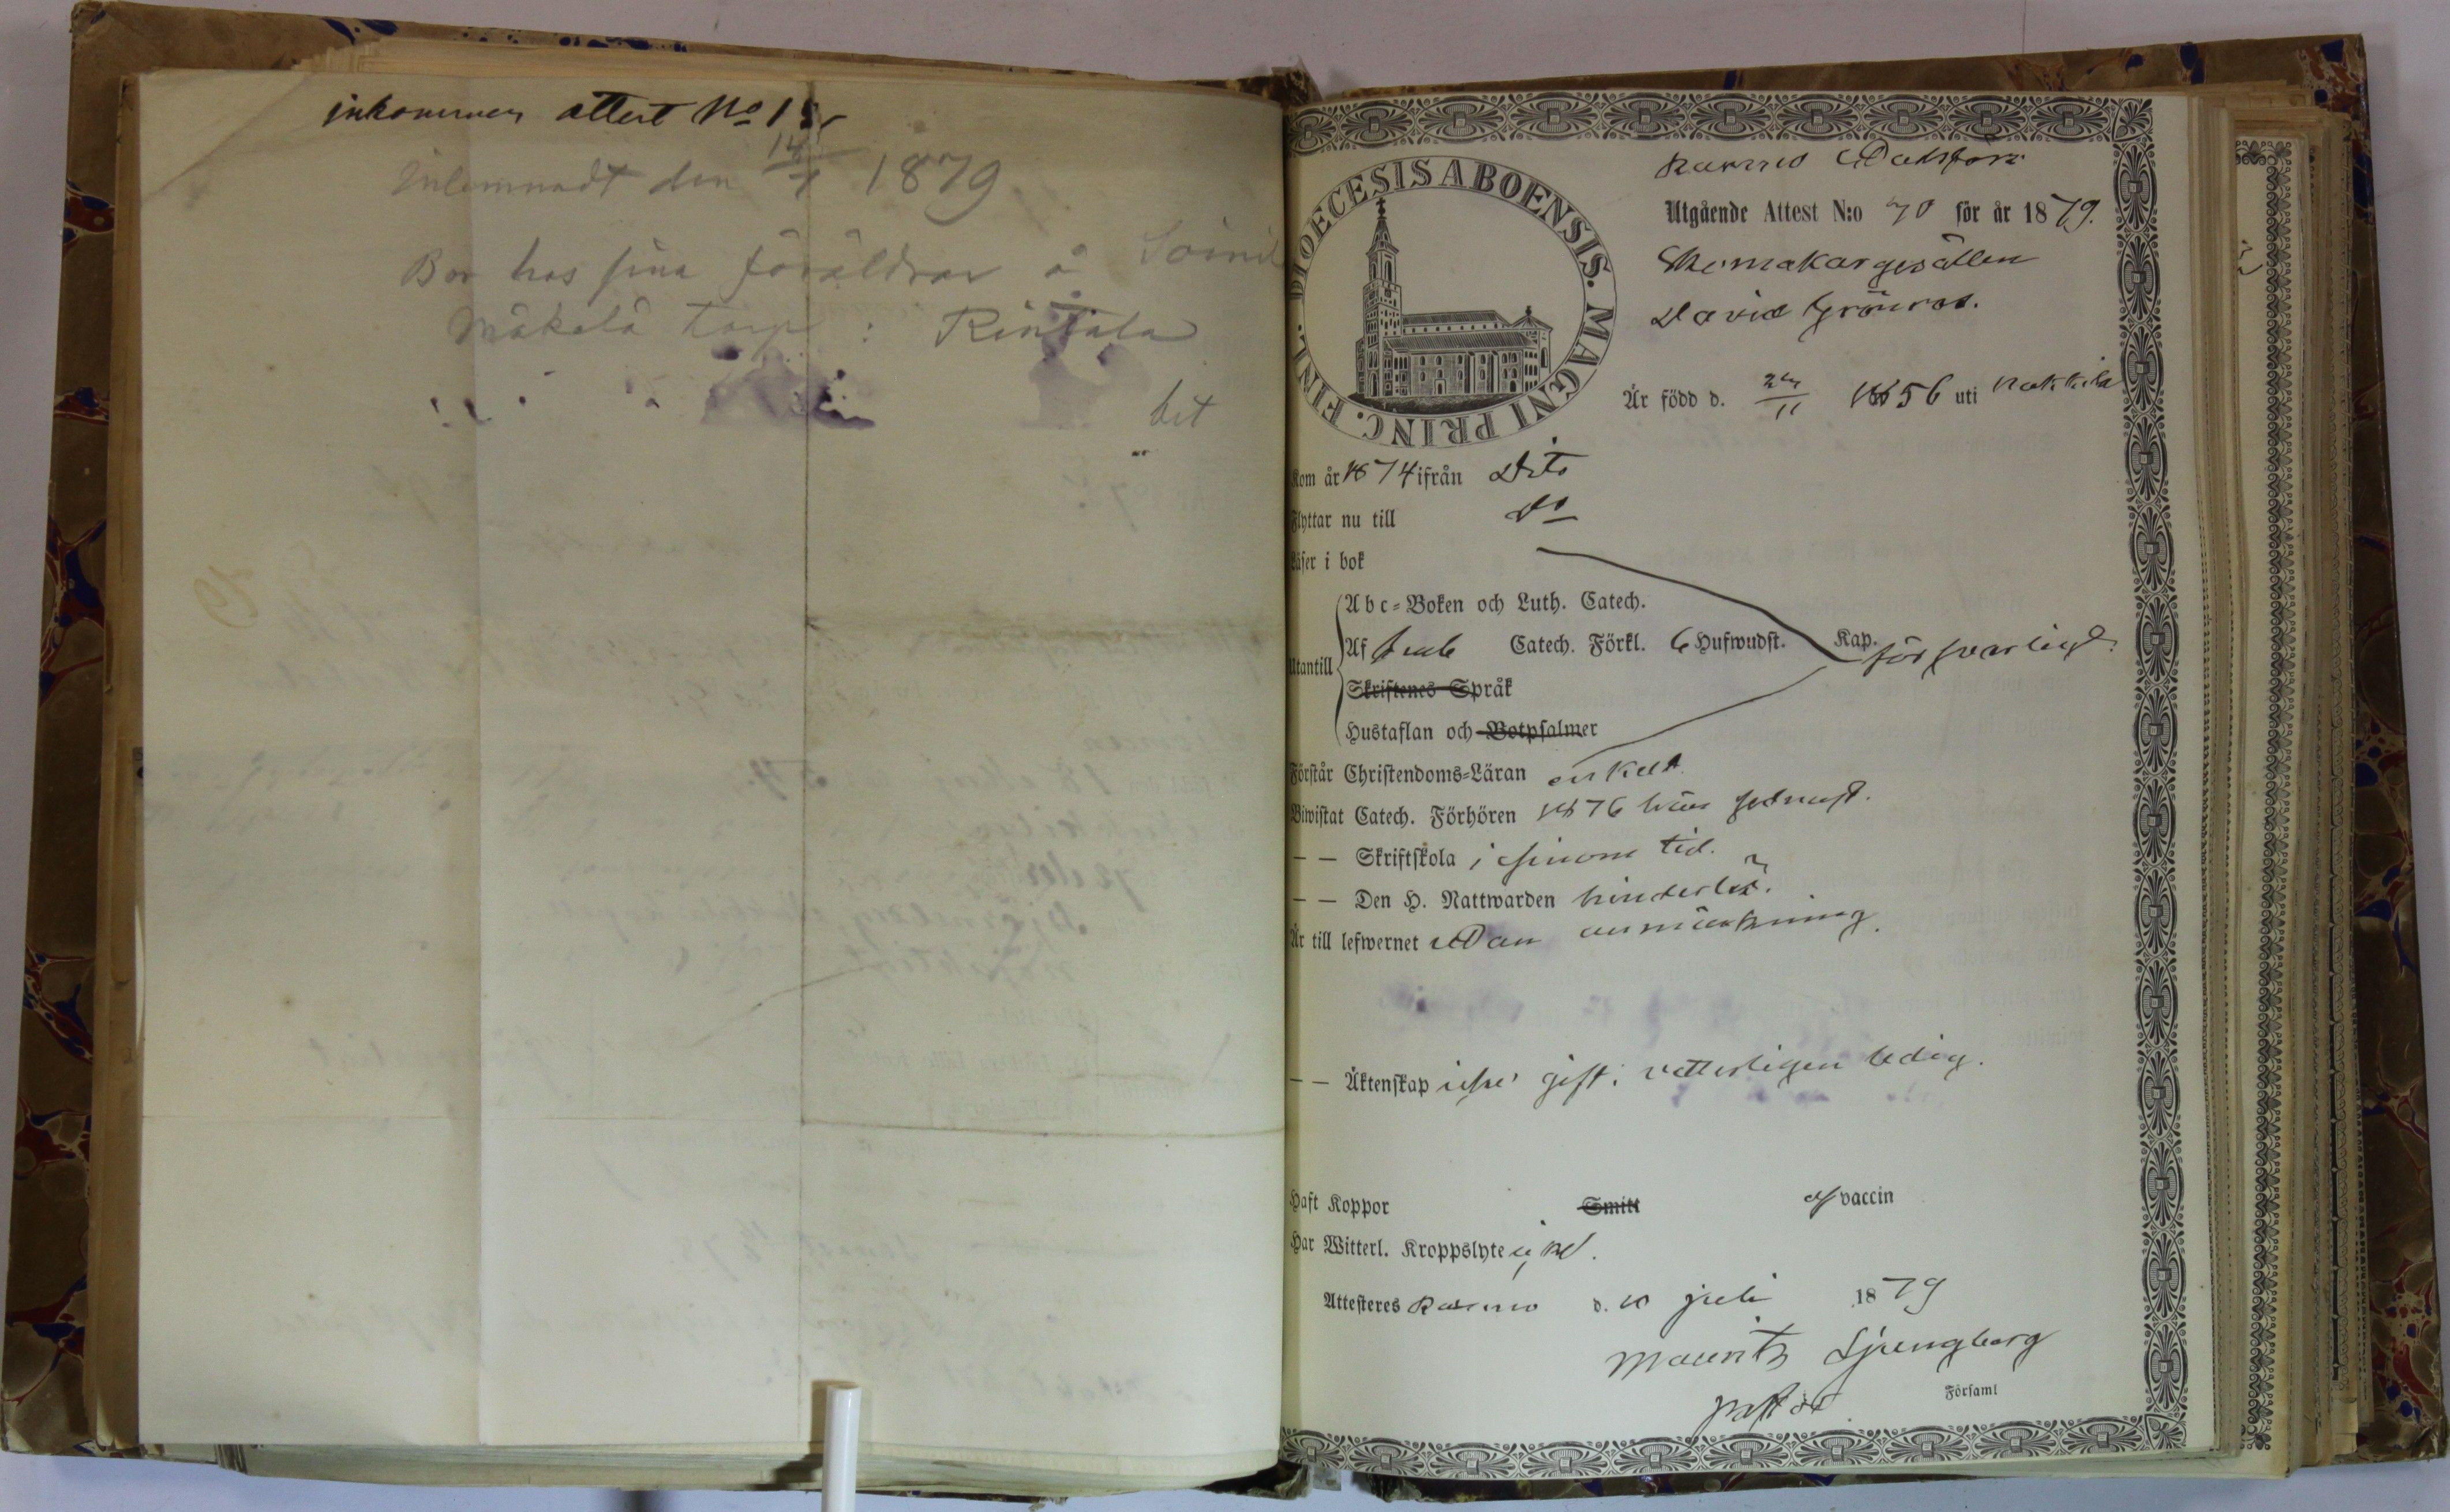 inkommen attest No 15
Inlemnadt den 14/7 1879
Bor hos sina föräldrar å Soinil
Mäkelä torp : Rintala
het
DIOECESIS ABOENSIS. MAGNI PRINC. FINL.
Raumo
Utgående Attest N:o 70 för år 1879.
Skomakargesällen
David Grönros.
Är född d. 24/11 1856 uti Nakkila
Kom år 1874 ifrån Dito
Flyttar nu till Do
Läser i bok
Abc=Boken och Luth. Catech.
Utantill Af Catech. Förkl. 6 Hufwudst. Kap. försvarligt.
Skriftenes Språk
Hustaflan och Botpsalmer
Förstår Christendoms=Läran enkelt
Biwistat Catech. Förhören 1876 här sednast.
— — Skriftskola i sinom tid.
— — Den H. Nattwarden hinderlös.
Är till lefwernet utan anmärkning.
— — Äktenskap icke gift; vetterligen ledig.
Haft Koppor Smitt af vaccin
Har Witterl. Kroppslyte
Attesteres Raumo d. 10 juli 1879
Mauritz Ljungberg
pastor Församl